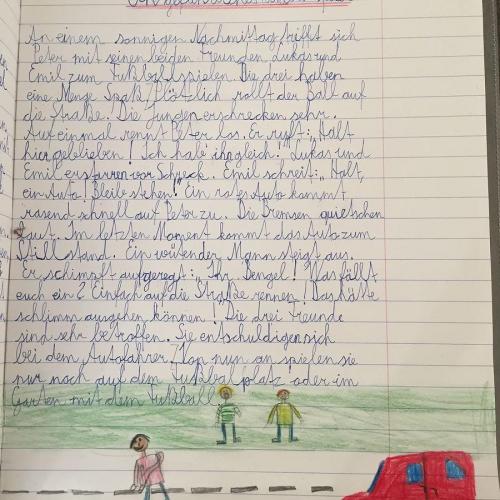 An einem sonnigen Nachmittag trifft sich
Peter mit seinen beiden Freunden Lukas und
Emil zum Fußballspielen. Die drei haben
eine Menge Spaß. Plötzlich rollt der Ball auf
die Straße. Die Jungen erschrecken sehr.
Auf einmal rennt Peter los. Er ruft: „Halt
hier geblieben! Ich hab ihn gleich!" Lukas und
Emil erstarren vor Schreck. Emil schreit: „Halt,
ein Auto! Bleib stehen!" Ein rotes Auto kommt
rasend schnell auf Peter zu. Die Bremsen quietschen
laut. Im letzten Moment kommt das Auto zum
Stillstand. Ein wütender Mann steigt aus.
Er schimpft aufgeregt: „Ihr Bengel! Was fällt
euch ein? Einfach auf die Straße rennen! Das hätte
schlimm ausgehen können! Die drei Freunde
sind sehr betroffen. Sie entschuldigen sich
bei dem Autofahrer. Von nun an spielen sie
nur noch auf dem Fußballplatz oder im
Garten mit dem Fußball.